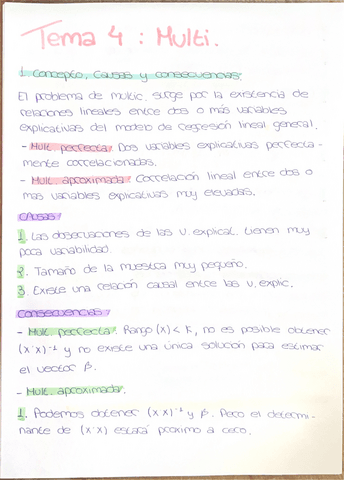 Tema 4 : Multi.
1. Concepto, Causas y consecuencias.
El problema de multic. surge por la existencia de
relaciones lineales entre dos o más variables
explicativas del modelo de regresión lineal general.
- Mult perfecta: Dos variables explicativas perfecta-
mente correlacionadas.
- Mult. aproximada: Correlación lineal entre dos o
mas variables explicativas muy elevadas.
Causas:
1. Las observaciones de las v. explicat. tienen muy
poca variabilidad.
2. Tamaño de la muestra muy pequeño.
3. Existe una relación causal entre las v. explic.
Consecuencias:
- Mult perfecta: Rango (x) < K, no es posible obtener
(x'x)⁻¹ y no existe una única solución para estimar
el vector β.
- Mult. aproximada.
1. Podemos obtener (x'x)⁻¹ y β. Pero el determi-
nante de (x'x) estará proximo a cero.